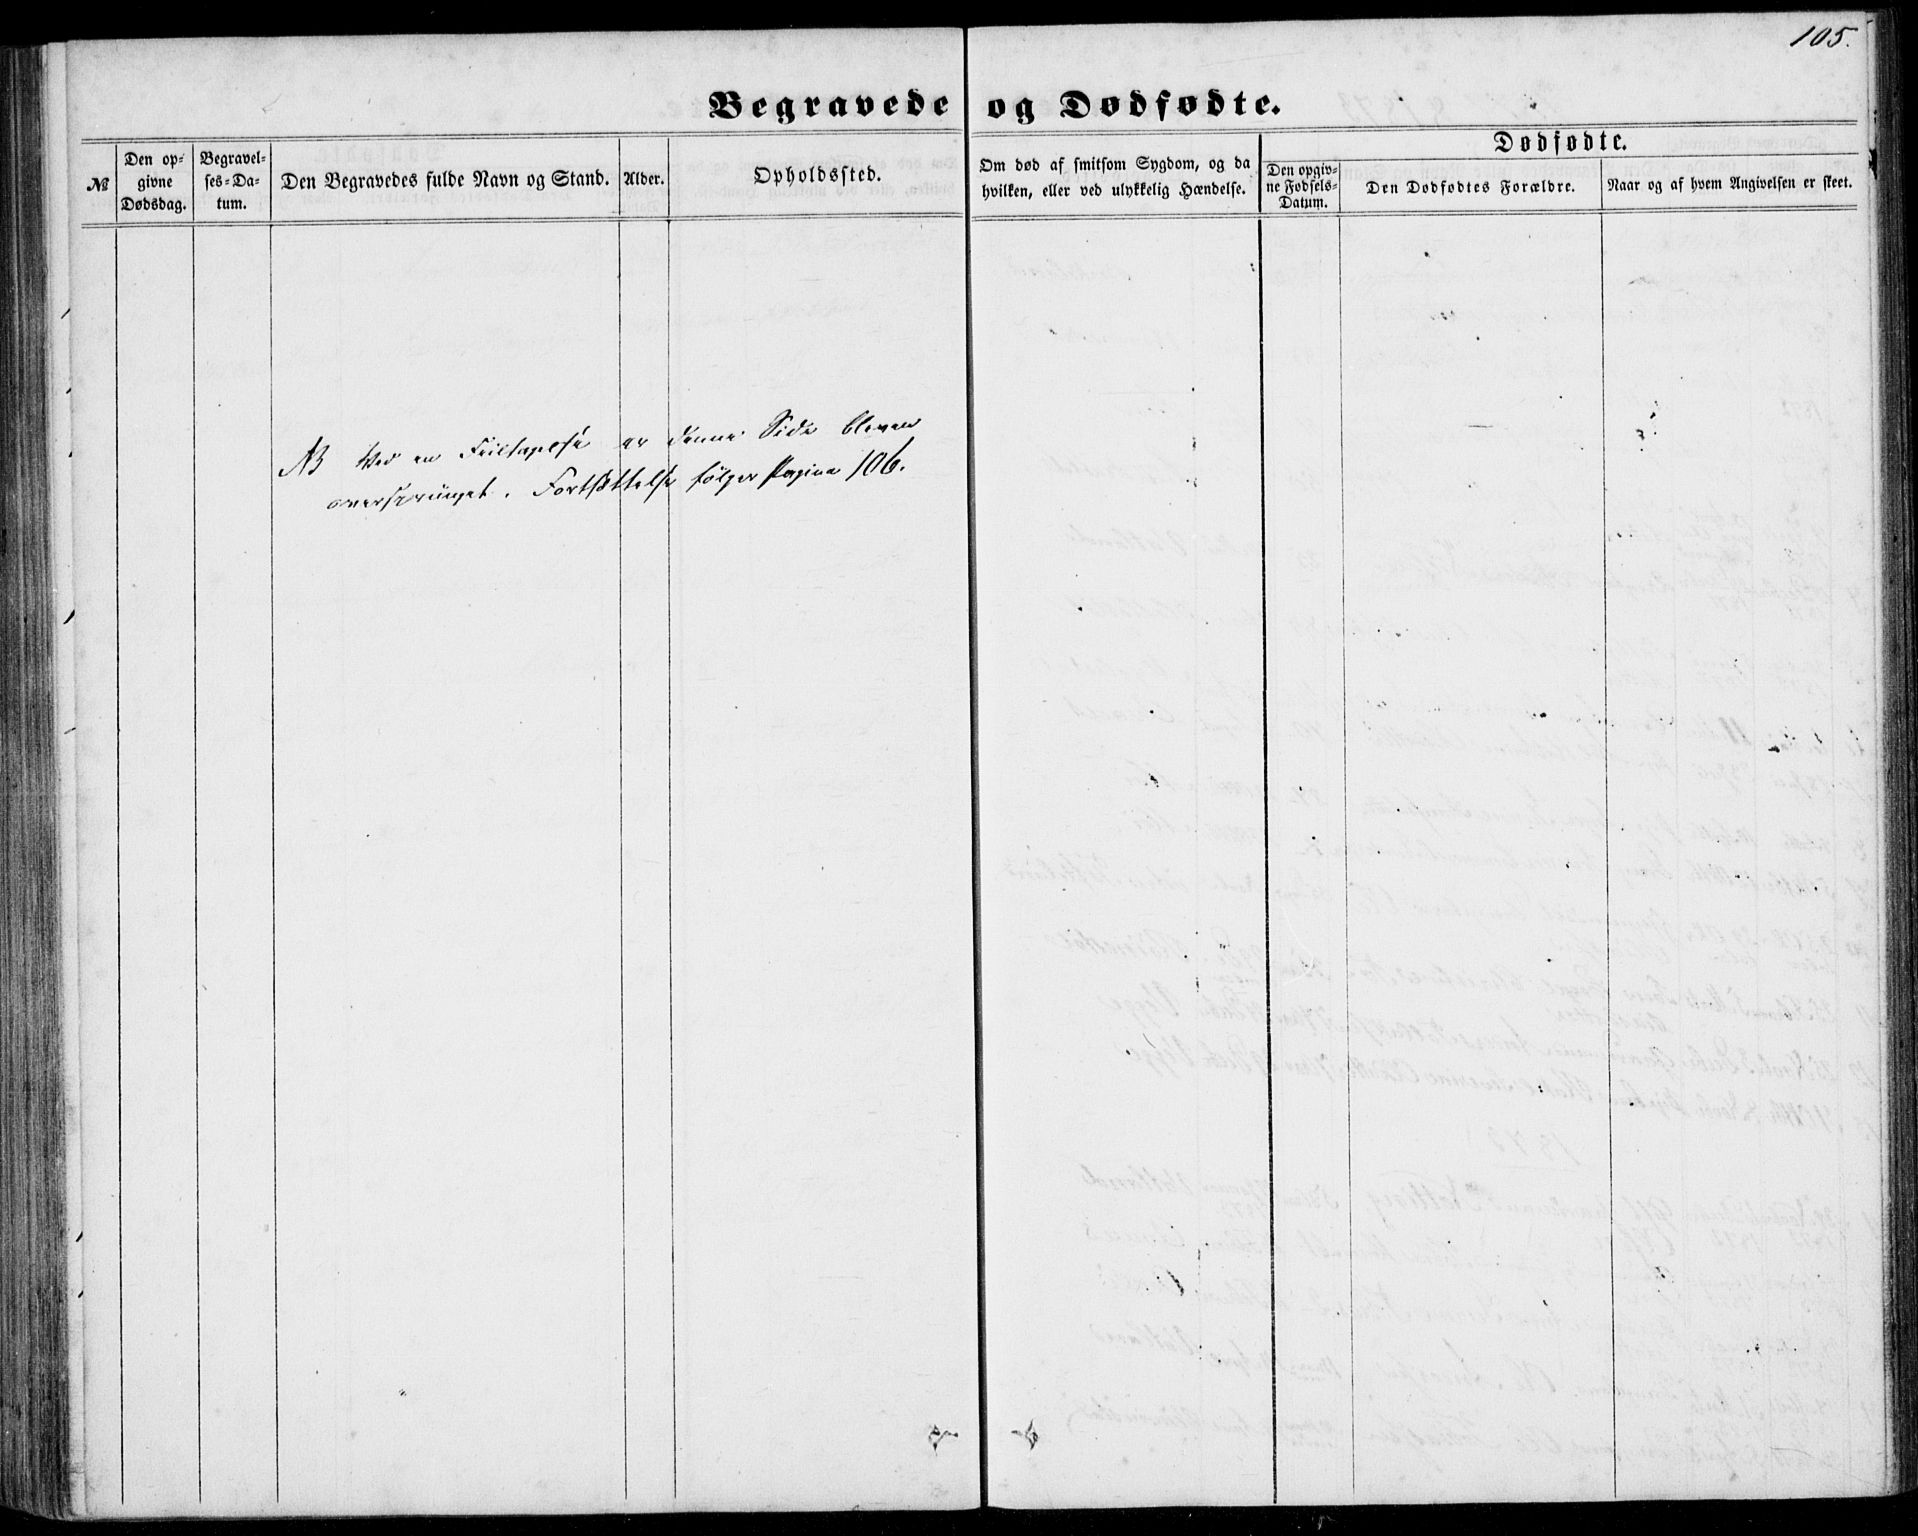 105.
Begravede og Dødfødte.
№
Den op-
givne
Dødsdag.
Begravel-
ses-Da-
tum.
Den Begravedes fulde Navn og Stand.
Alder.
Opholdssted.
Om død af smitsom Sygdom, og da
hvilken, eller ved ulykkelig Hændelse.
Dødfødte.
Den opgiv-
ne Fødsels-
Datum.
Den Dødfødtes Forældre.
Naar og af hvem Angivelsen er skeet.
NB Ved en Feiltagelse er denne Side bleven
oversprunget. Fortsættelse følger Pagina 106.